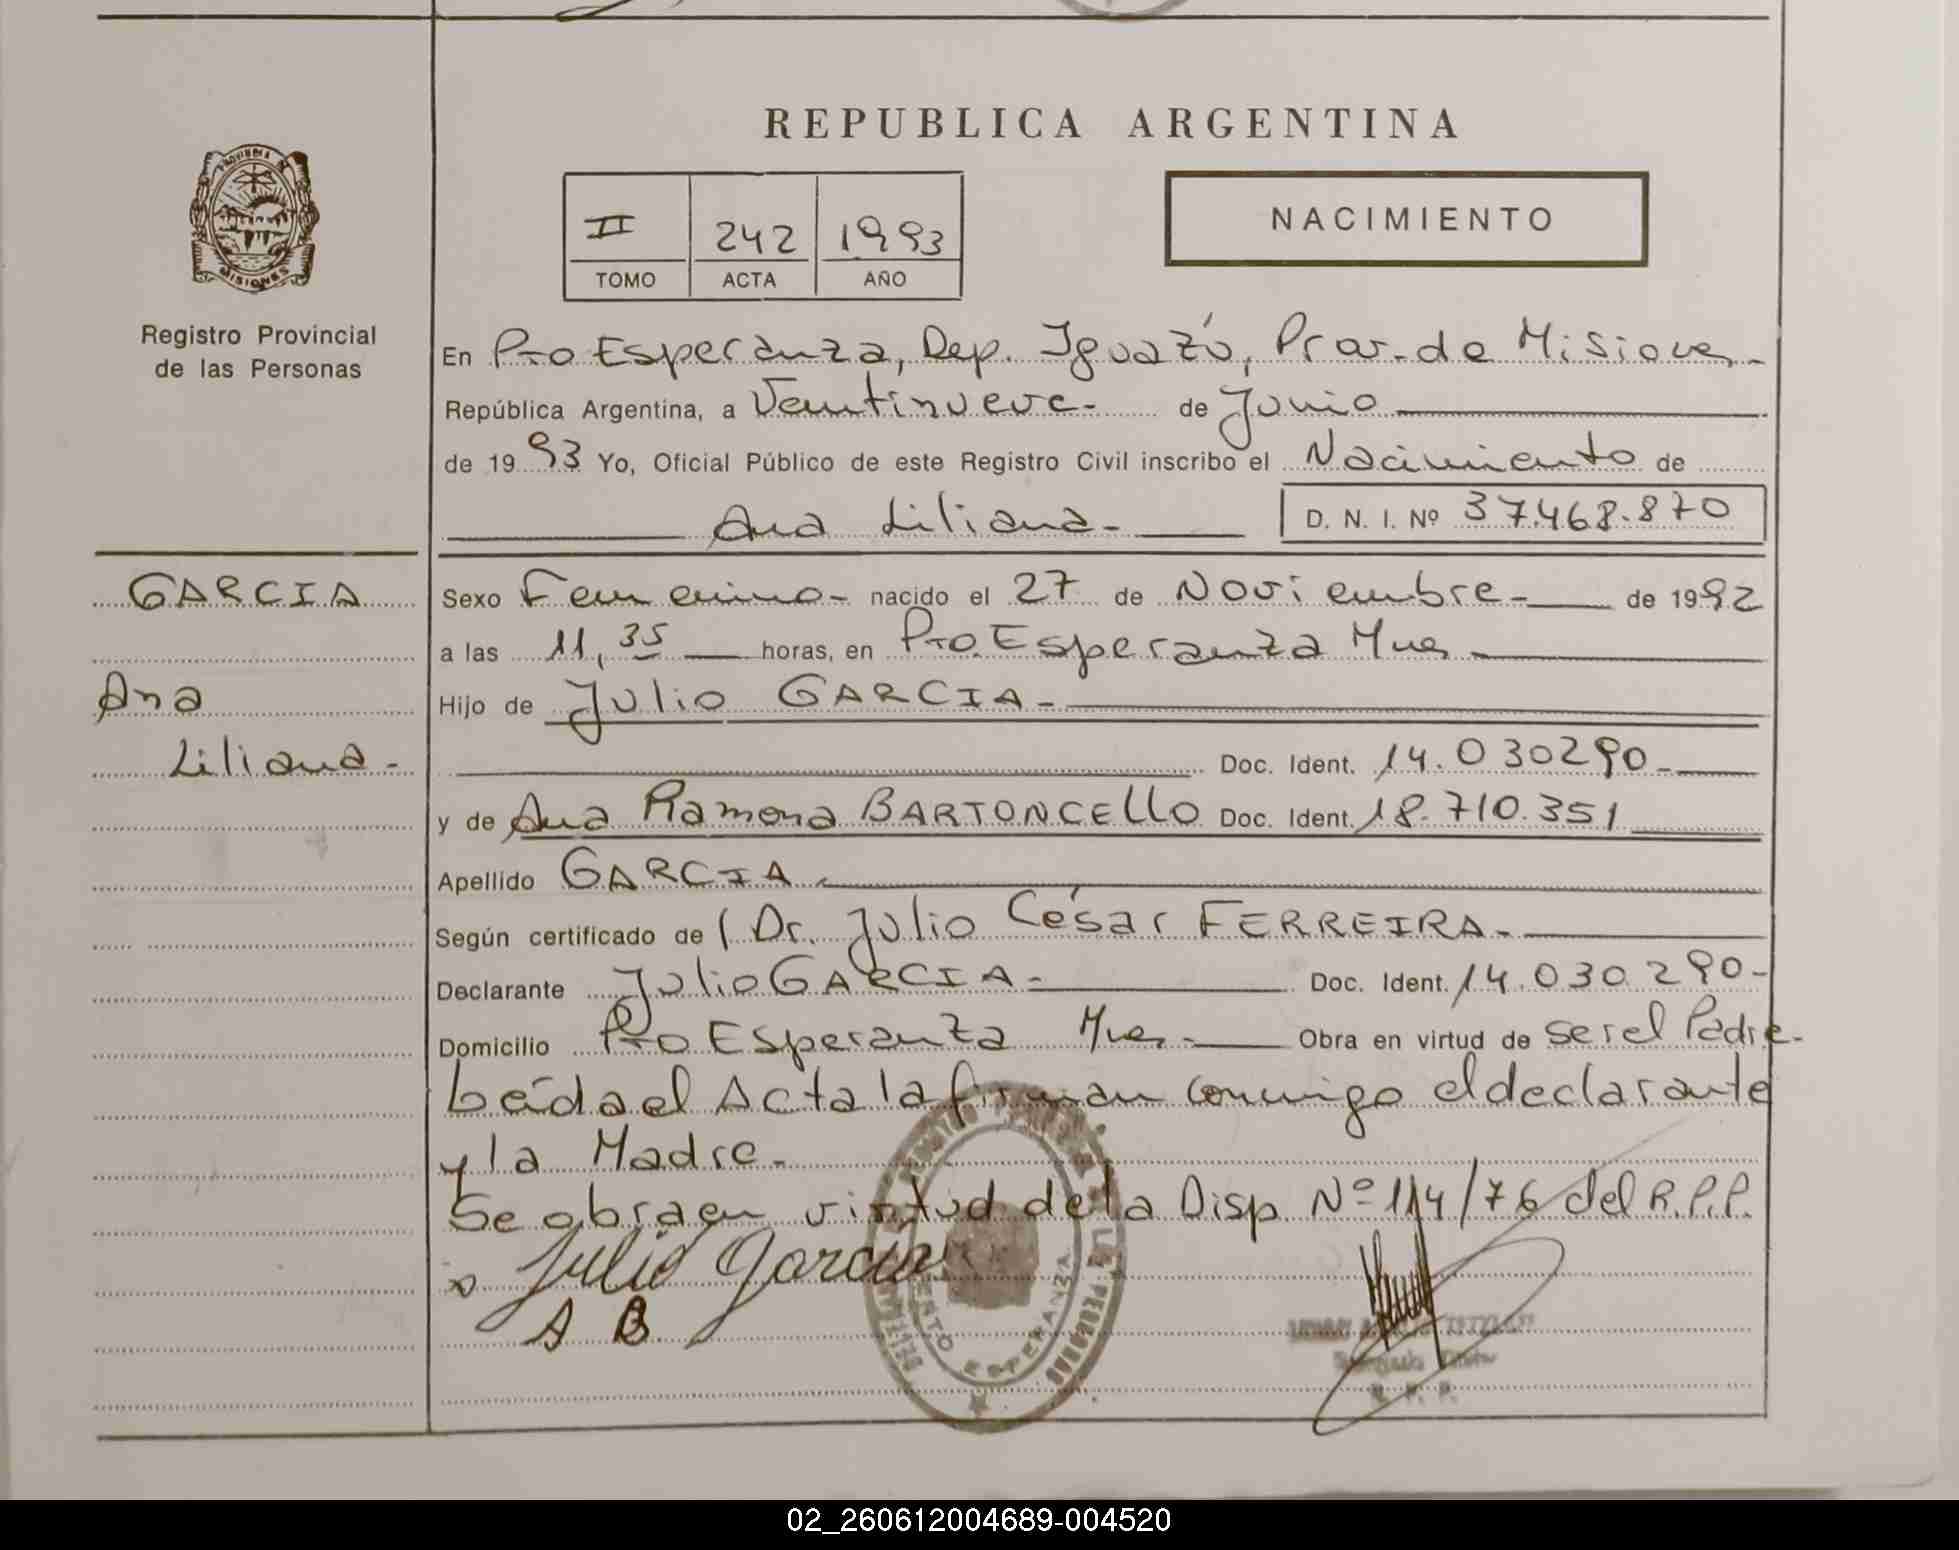 REPUBLICA ARGENTINA
PROVINCIA DE
MISIONES
Registro Provincial
de las Personas
II 242 1993
TOMO ACTA AÑO
NACIMIENTO
En Pto Esperanza, Dep. Iguazú, Prov. de Misiones-
República Argentina, a Veintinueve- de Junio
de 1993 Yo, Oficial Público de este Registro Civil inscribo el Nacimiento de
Ana Liliana- D. N. I. Nº 37.468.870
GARCIA
Ana
Liliana-
Sexo Femenino- nacido el 27 de Noviembre- de 1992
a las 11,35 horas, en Pto. Esperanza Mnes
Hijo de Julio GARCIA-
Doc. Ident. 14.030290-
y de Ana Ramona BARTONCELLO Doc. Ident. 18.710.351
Apellido GARCIA
Según certificado de Dr. Julio César FERREIRA-
Declarante Julio GARCIA- Doc. Ident. 14.030.290-
Domicilio Pto Esperanza Mnes- Obra en virtud de ser el Padre-
Leída el Acta la firman conmigo el declarante
y la Madre-
Se obra en virtud de la Disp Nº 114/76 del R.P.P.
Julio Garcia
A B
ESPERANZA
R. P. P.
02_260612004689-004520